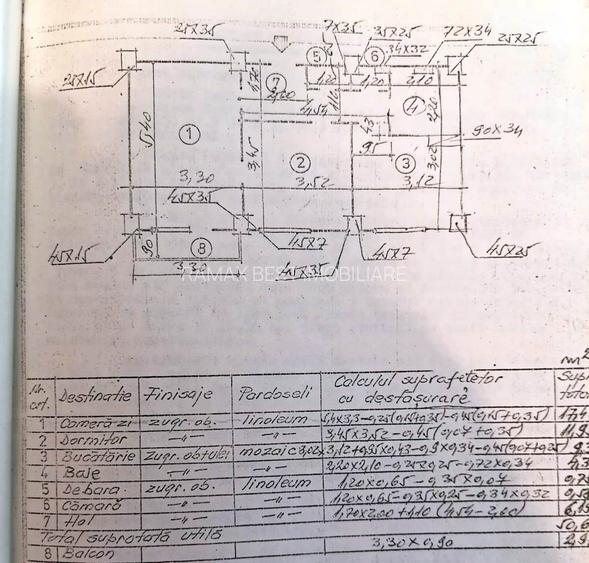 25X35
7X35
35X25
34X32
72X34
25X25
25X15
5
6
7
1,70
2,00
1,20
1,10
1,20
2,10
4
2,20
4,54
43
90X34
5,40
1
3,45
2
95
3
3,02
3,30
3,52
3,12
45X35
45X15
90
8
45X7
45X35
45X7
45X25
3,30
RAMAX BEST IMOBILIARE
m2
Nr. crt. Destinatie Finisaje Pardoseli Calculul suprafetelor cu desfasurare
1 Cameră zi zugr. ob. linoleum 5,4x3,3-0,25(0,15+0,35)-0,45(0,15+0,35) 17,4
2 Dormitor -"- -"- 3,45x3,52-0,45(0,07+0,35) 11,9
3 Bucătărie zugr. obtulei mozaic 3,02x3,12+0,95x0,43-0,9x0,34-0,45(0,07+0,25)
4 Baie -"- -"- 2,20x2,10-0,25x0,25-0,72x0,34
5 Debara zugr. ob. linoleum 1,20x0,65-0,35x0,07
6 Cămară -"- -"- 1,20x0,65-0,35x0,25-0,34x0,32
7 Hol -"- -"- 1,70x2,00+1,10(4,54-2,00)
Total suprafată utilă 50,6
8 Balcon 3,30x0,90 2,9